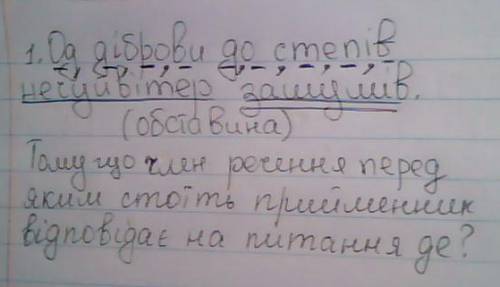 1. Од діброви до степів
нечуйвітер зашумів.
(обставина)
Тому що член речення перед
яким стоїть прийменник
відповідає на питання де?